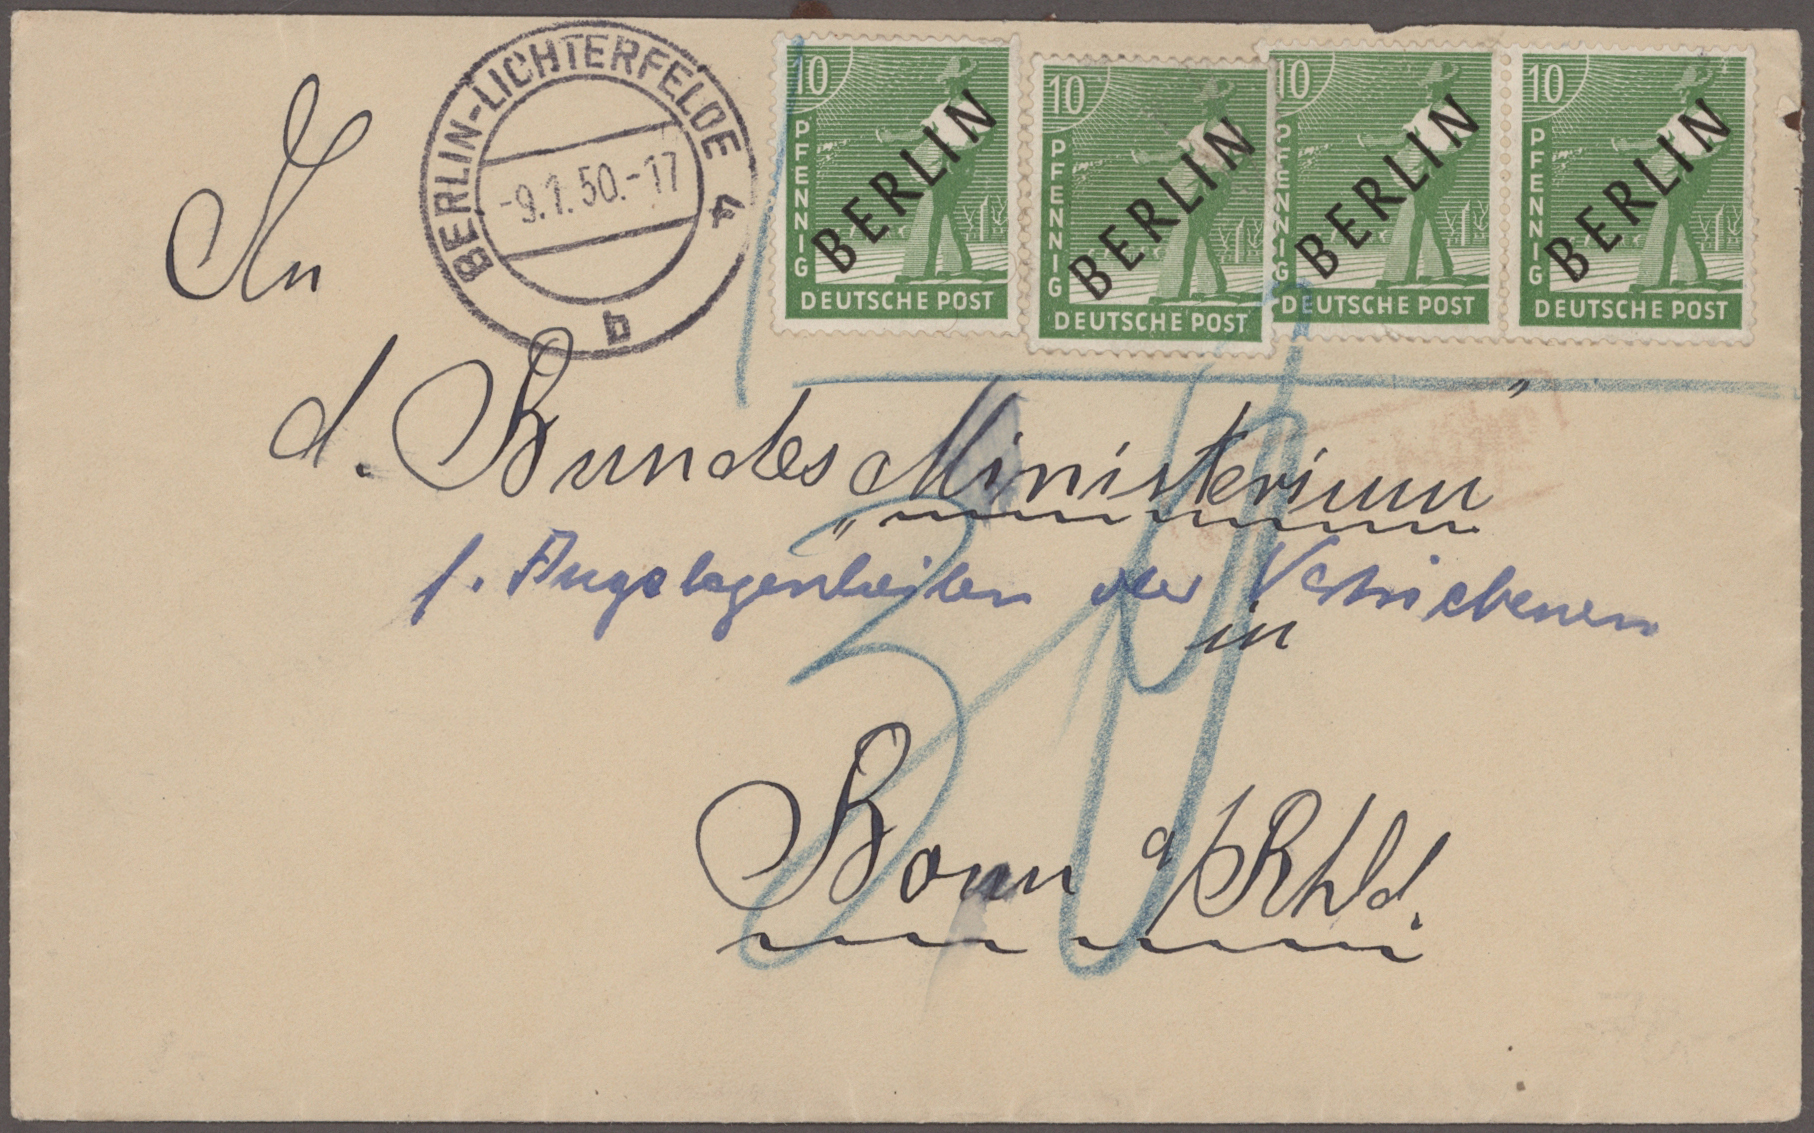 BERLIN-LICHTERFELDE 4
-9.1.50.-17
b
10 PFENNIG DEUTSCHE POST BERLIN
10 PFENNIG DEUTSCHE POST BERLIN
10 PFENNIG DEUTSCHE POST BERLIN
10 PFENNIG DEUTSCHE POST BERLIN
An
d. Bundes Ministerium "
" f. Angelegenheiten der Vertriebenen
in
Bonn a/Rhld.